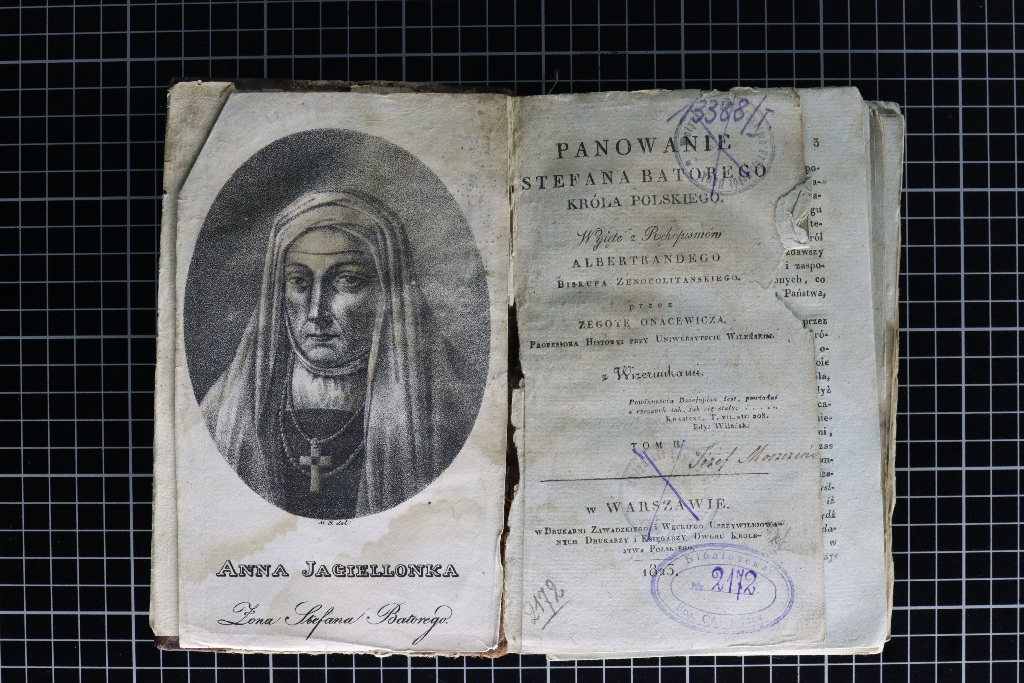 M. B. del.
ANNA JAGIELLONKA
Żona Stefana Batorego.
13388/I
PANOWANIE
STEFANA BATOREGO
KRÓLA POLSKIEGO.
Wyięte z Rękopismów
ALBERTRANDEGO
BISKUPA ZENOPOLITANSKIEGO.
przez
ŻEGOTĘ ONACEWICZA,
PROFESSORA HISTORYI PRZY UNIWERSYTECIE WILEŃSKIM.
z Wizerunkami.
Powinnością Dzieiopisa iest, powiadać
o rzeczach tak, iak się stały. . . . . .
T. VII. str. 208.
Edy: Wileńsk:
TOM II
Józef
w WARSZAWIE.
W DRUKARNI ZAWADZKIEGO i WĘCKIEGO UPRZYWILEIOWA-
NYCH DRUKARZY i KSIĘGARZY DWORU KRÓLE-
STWA POLSKIEGO.
1823.
2172
Biblioteka
No 2172
3
po-
s-
a-
gu
te-
ról
zdawszy
i zaspo-
onych, co
Państwa,
przez
ró-
o-
oie
ła,
dyż
ca-
nie-
ni,
zas
an-
sza-
śl-
iż
ędź
do-
w